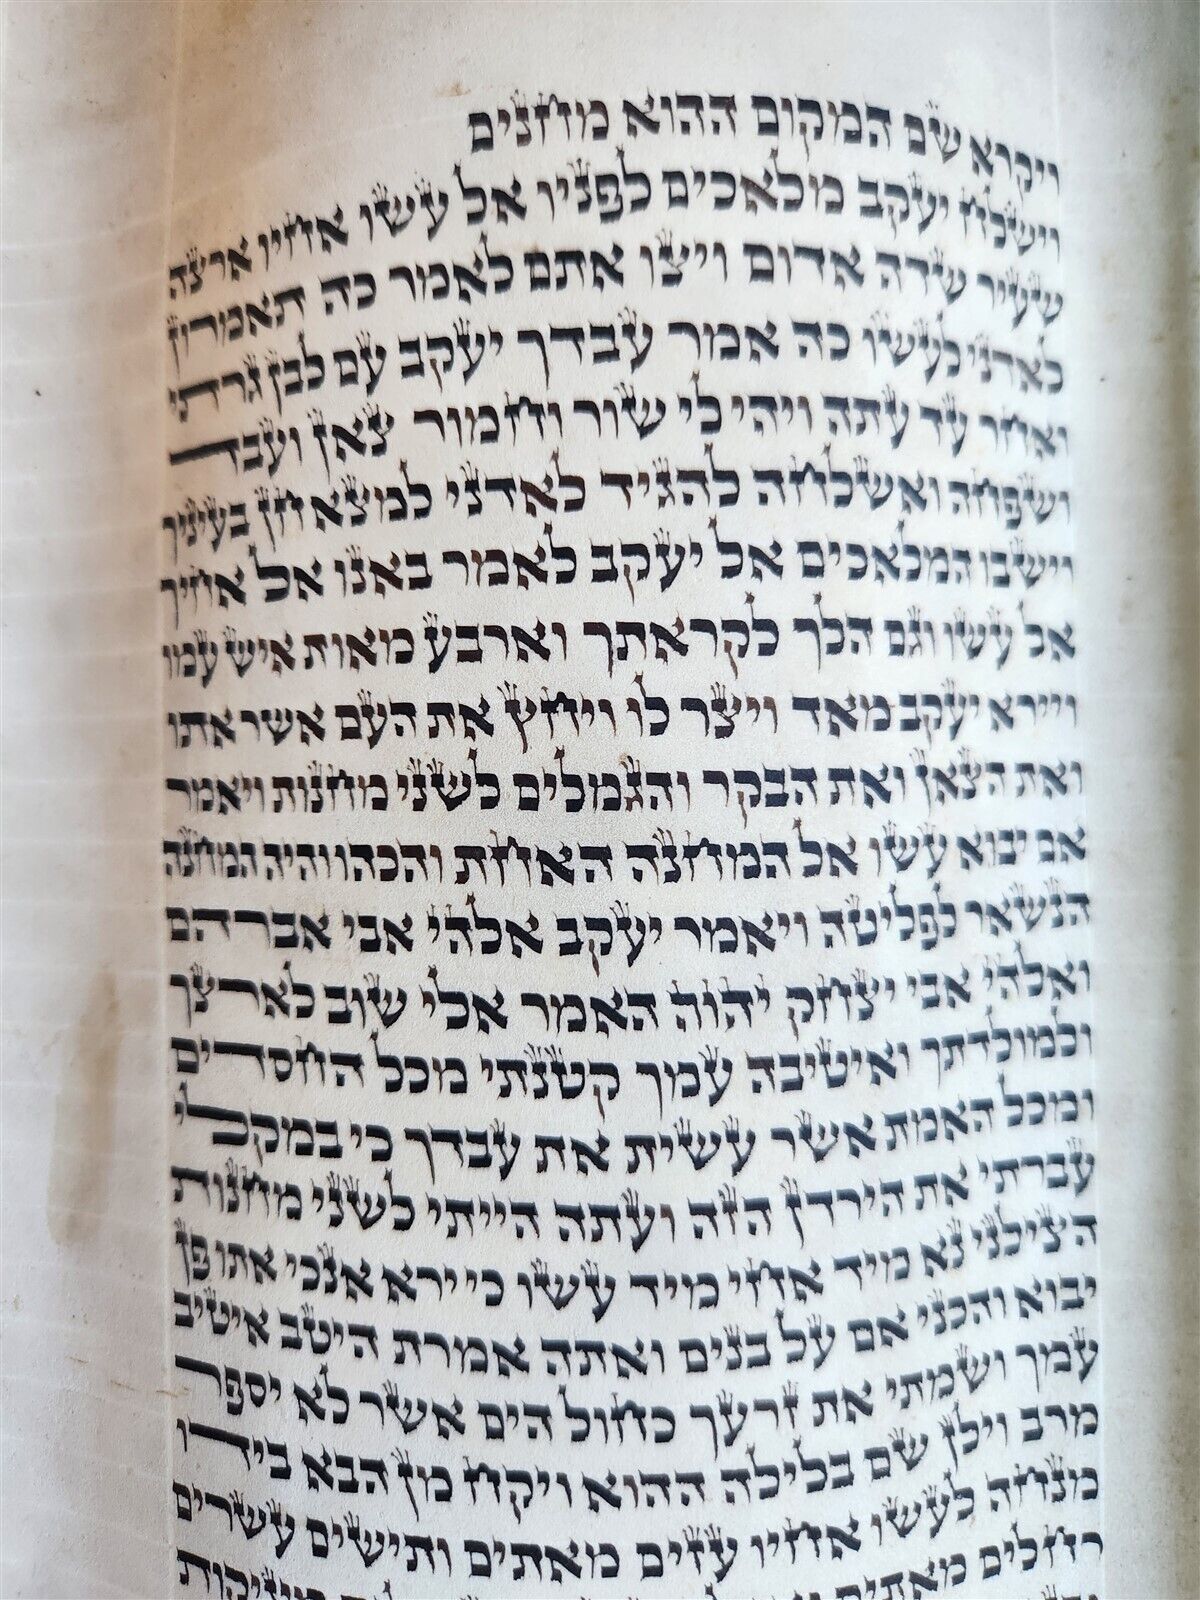 ויקרא שם המקום ההוא מחנים
וישלח יעקב מלאכים לפניו אל עשו אחיו ארצה
שעיר שדה אדום ויצו אתם לאמר כה תאמרון
לאדני לעשו כה אמר עבדך יעקב עם לבן גרתי
ואחר עד עתה ויהי לי שור וחמור צאן ועבד
ושפחה ואשלחה להגיד לאדני למצא חן בעיניך
וישבו המלאכים אל יעקב לאמר באנו אל אחיך
אל עשו וגם הלך לקראתך וארבע מאות איש עמו
ויירא יעקב מאד ויצר לו ויחץ את העם אשר אתו
ואת הצאן ואת הבקר והגמלים לשני מחנות ויאמר
אם יבוא עשו אל המחנה האחת והכהו והיה המחנה
הנשאר לפליטה ויאמר יעקב אלהי אבי אברהם
ואלהי אבי יצחק יהוה האמר אלי שוב לארצך
ולמולדתך ואיטיבה עמך קטנתי מכל החסדים
ומכל האמת אשר עשית את עבדך כי במקלי
עברתי את הירדן הזה ועתה הייתי לשני מחנות
הצילני נא מיד אחי מיד עשו כי ירא אנכי אתו פן
יבוא והכני אם על בנים ואתה אמרת היטב איטיב
עמך ושמתי את זרעך כחול הים אשר לא יספר
מרב וילן שם בלילה ההוא ויקח מן הבא בידו
מנחה לעשו אחיו עזים מאתים ותישים עשרים
רחלים מאתים מיניקות